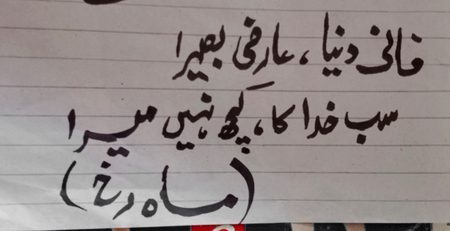 فانی دنیا، عارضی بصیرا
سب خدا کا، کچھ نہیں میرا
(ماہ رخ)